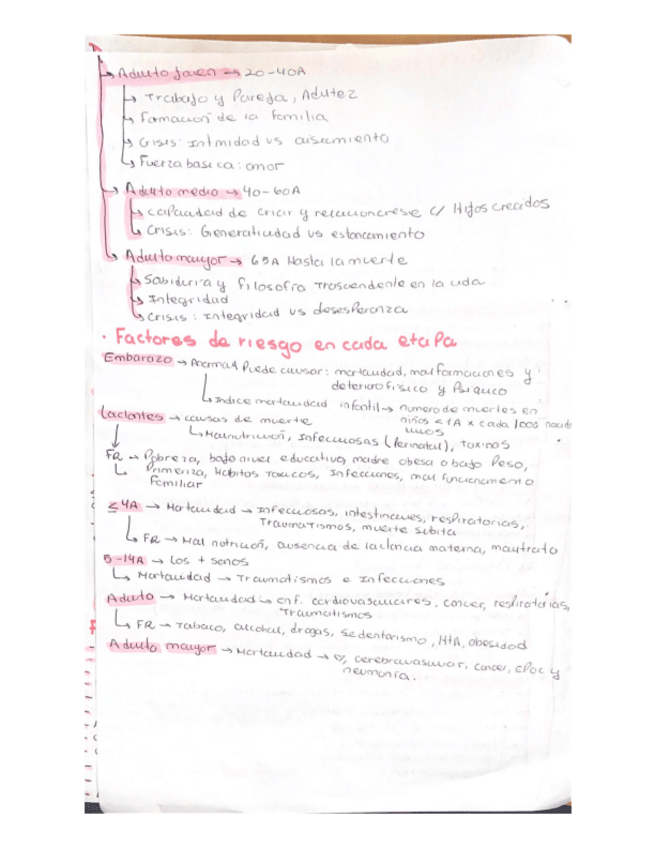 Adulto joven → 20-40A
Trabajo y Pareja, Adultez
Formacion de la familia
Crisis: Intimidad vs aislamiento
Fuerza basica: amor
Adulto medio → 40-60A
capacidad de criar y relacionarse c/ Hijos crecidos
Crisis: Generatividad vs estancamiento
Adulto mayor → 65A Hasta la muerte
Sabiduria y filosofia Trascendente en la vida
Integridad
Crisis: Integridad vs desesperanza
· Factores de riesgo en cada etapa
Embarazo → Anomal Puede causar: mortalidad, malformaciones y
deterioro fisico y Psiquico
Indice mortalidad infantil → numero de muertes en
niños <1A x cada 1000 nacidos
vivos
Lactantes → causas de muerte
Malnutrición, Infecciosas (Perinatal), Toxinos
FR → Pobreza, bajo nivel educativo, madre obesa o bajo Peso,
Primeriza, Habitos Toxicos, Infecciones, mal funcionamiento
Familiar
≤4A → Mortalidad → Infecciosas, intestinales, respiratorias,
Traumatismos, muerte subita
FR → Mal nutrición, ausencia de lactancia materna, maltrato
5-14A → Los + sanos
Mortalidad → Traumatismos e Infecciones
Adulto → Mortalidad → enf. cardiovasculares, cancer, respiratorias,
Traumatismos
FR → Tabaco, alcohol, drogas, Sedentarismo, HTA, obesidad
Adulto mayor → Mortalidad → ♡, cerebrovascular, cancer, EPOC y
neumonía.